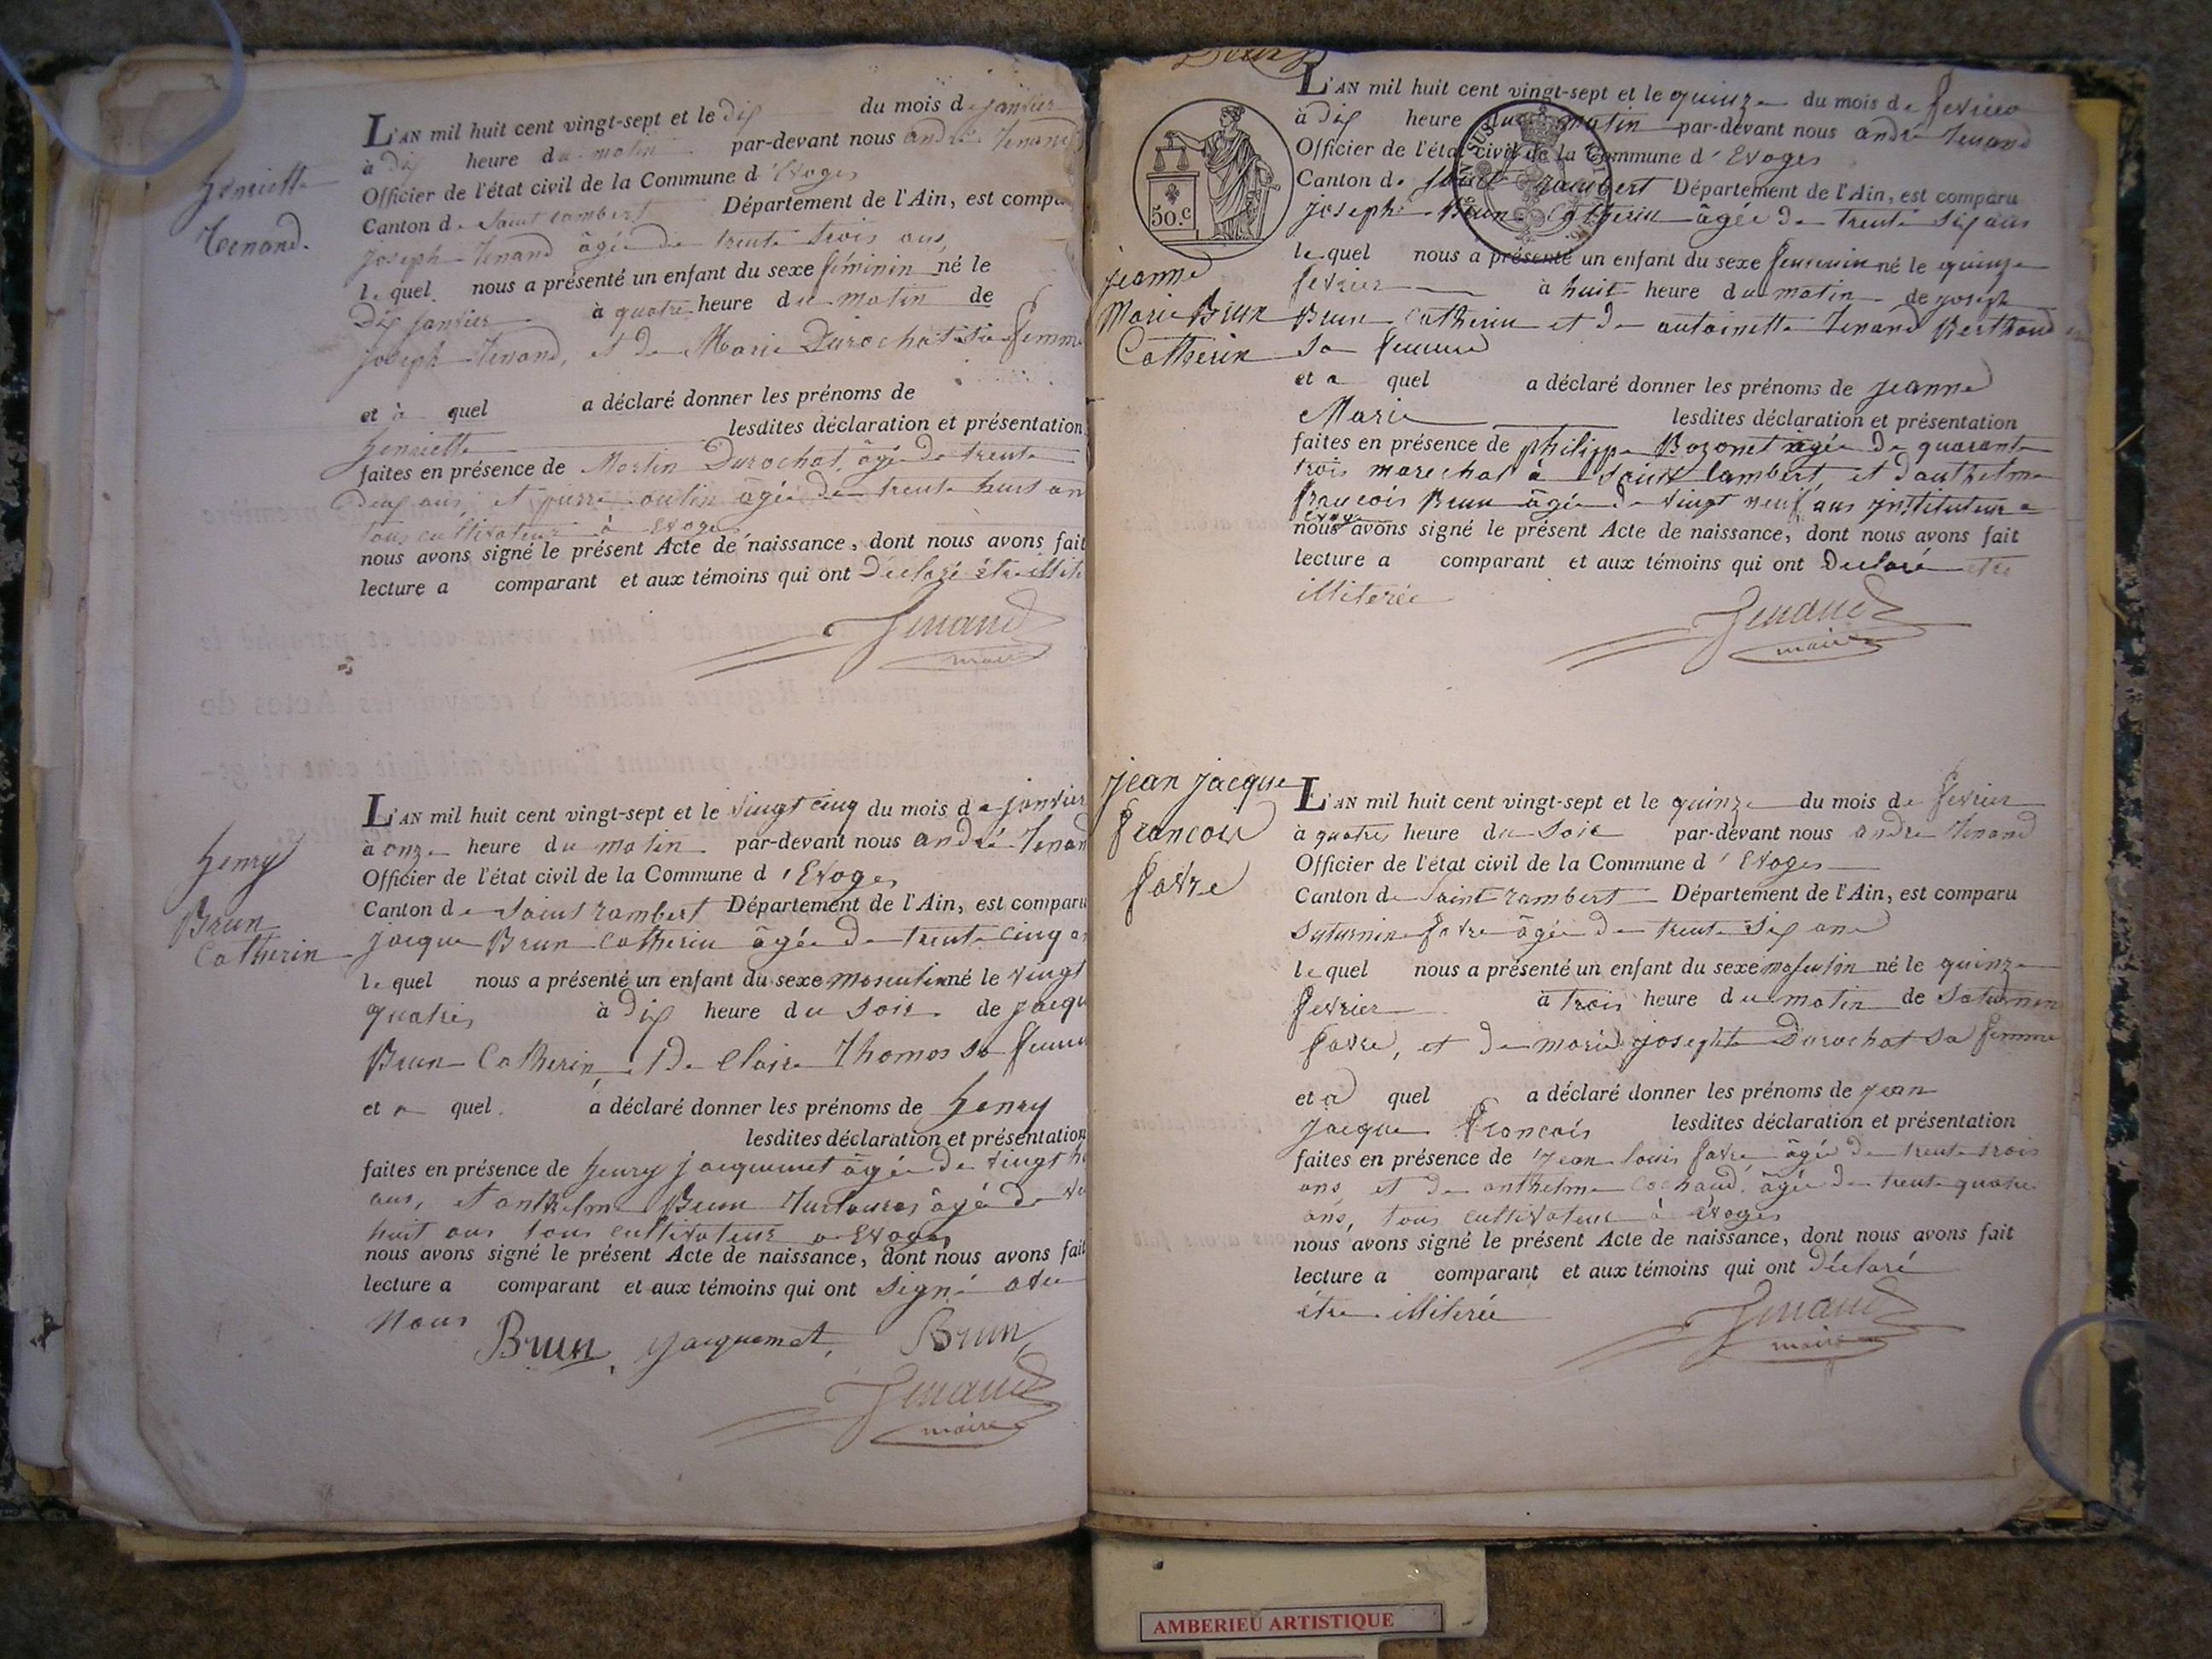 henriette
Tenand.
L'AN mil huit cent vingt-sept et le dix du mois de janvier
à dix heure du matin par-devant nous andré Tenand
Officier de l'état civil de la Commune d'Evoges
Canton de Saint lambert Département de l'Ain, est compa
joseph Tenand âgée de trente trois ans,
le quel nous a présenté un enfant du sexe féminin né le
Dix janvier à quatre heure du matin de
joseph Tenand, et de Marie Durochat sa femme
et à quel a déclaré donner les prénoms de
henriette lesdites déclaration et présentation
faites en présence de Martin Durochat, âgé de trente
deux ans, et pierre âgée de trente huit an
tous cultivateur à Evoges
nous avons signé le présent Acte de naissance, dont nous avons fait
lecture a comparant et aux témoins qui ont Declaré être illite
Tenand
maire
henry
Brun
Catherin
L'AN mil huit cent vingt-sept et le vingt cinq du mois de janvier
à onze heure du matin par-devant nous andré Tenan
Officier de l'état civil de la Commune d'Evoges
Canton de Saint rambert Département de l'Ain, est comparu
jacque Brun Catherin âgée de trente cinq a
le quel nous a présenté un enfant du sexe masculin né le vingt
quatre à dix heure du Soir de jacqu
Brun Catherin, et De Claire Thomas sa femm
et a quel a déclaré donner les prénoms de henry
lesdites déclaration et présentation
faites en présence de henry jacquemet âgée de vingt h
ans, et anthelme Brun âgé de
huit ans tous cultivateur a Evoges
nous avons signé le présent Acte de naissance, dont nous avons fait
lecture a comparant et aux témoins qui ont signé avec
Nous
Brun, jacquemet, Brun
Tenand
maire
50.c
jeanne
Marie Brun
Catherin
L'AN mil huit cent vingt-sept et le quinze du mois de fevrier
à dix heure du matin par-devant nous andre Tenand
Officier de l'état civil de la Commune d'Evoges
Canton de Saint rambert Département de l'Ain, est comparu
joseph Brun Catherin âgée de trente six ans
le quel nous a présenté un enfant du sexe feminin né le quinze
fevrier à huit heure du matin de joseph
Brun Catherin et de antoinette Tenand Berthoud
sa femme
et a quel a déclaré donner les prénoms de jeanne
Marie lesdites déclaration et présentation
faites en présence de philippe Bozonet âgée de quarante
trois marechal à Saint lambert, et d'anthelme
françois Brun âgée de vingt neuf ans instituteur a
Evoges
nous avons signé le présent Acte de naissance, dont nous avons fait
lecture a comparant et aux témoins qui ont Declaré être
illiterée
Tenand
maire
jean jacque
francois
favre
L'AN mil huit cent vingt-sept et le quinze du mois de fevrier
à quatres heure du soir par-devant nous andre Tenand
Officier de l'état civil de la Commune d'Evoges
Canton de Saint rambert Département de l'Ain, est comparu
Saturnin favre âgée de trente six ans
le quel nous a présenté un enfant du sexe masculin né le quinze
fevrier à trois heure du matin de Saturnin
favre, et de marie josephte Durochat sa femme
et a quel a déclaré donner les prénoms de jean
jacque francois lesdites déclaration et présentation
faites en présence de jean louis favre âgée de trente trois
ans et de anthelme âgée de trente quatre
ans, tous cultivateur à Evoges
nous avons signé le présent Acte de naissance, dont nous avons fait
lecture a comparant et aux témoins qui ont déclaré
être illiterée
Tenand
maire
AMBERIEU ARTISTIQUE